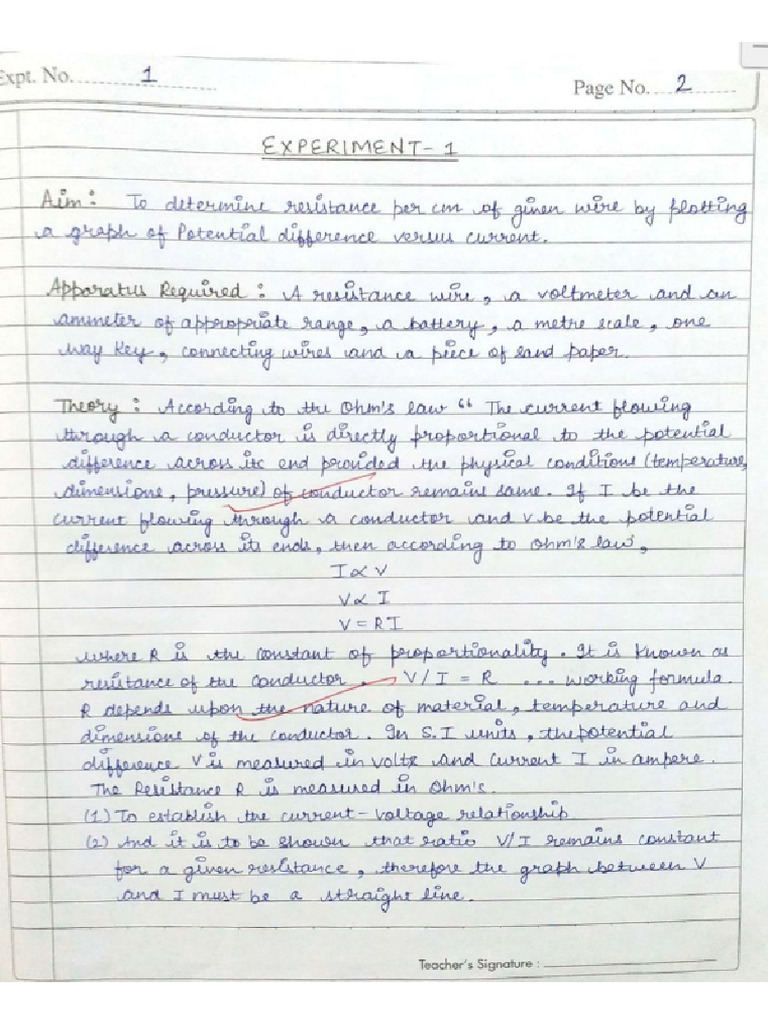 Expt. No. 1
Page No. 2
EXPERIMENT-1
Aim: To determine resistance per cm of given wire by plotting
a graph of Potential difference versus current.
Apparatus Required: A resistance wire, a voltmeter and an
ammeter of appropriate range, a battery, a metre scale, one
way key, connecting wires and a piece of sand paper.
Theory: According to the Ohm's law " The current flowing
through a conductor is directly proportional to the potential
difference across its end provided the physical conditions (temperature,
dimensions, pressure) of conductor remains same. If I be the
current flowing through a conductor and V be the potential
difference across its ends, then according to Ohm's law,
I ∝ V
V ∝ I
V = RI
where R is the constant of proportionality. It is known as
resistance of the conductor. V/I = R ... working formula.
R depends upon the nature of material, temperature and
dimensions of the conductor. In S.I units, the potential
difference V is measured in volts and current I in ampere.
The Resistance R is measured in Ohm's.
(1) To establish the current-voltage relationship
(2) And it is to be shown that ratio V/I remains constant
for a given resistance, therefore the graph between V
and I must be a straight line.
Teacher's Signature :